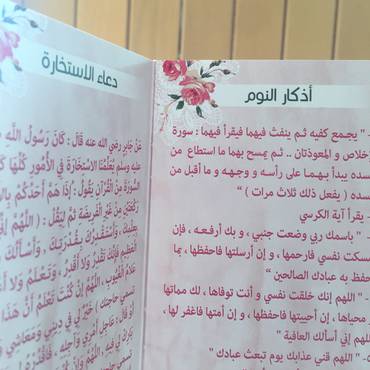 أذكار النوم
" يجمع كفيه ثم ينفث فيهما فيقرأ فيهما : سورة
خلاص و المعوذتان .. ثم يمسح بهما ما استطاع من
سده يبدأ بهما على رأسه و وجهه و ما أقبل من
سده ( يفعل ذلك ثلاث مرات ) "
- يقرأ آية الكرسي
- " باسمك ربي وضعت جنبي ، و بك أرفعه ، فإن
سكت نفسي فارحمها ، و إن أرسلتها فاحفظها ، بما
حفظ به عبادك الصالحين "
" اللهم إنك خلقت نفسي و أنت توفاها ، لك مماتها
محياها ، إن أحييتها فاحفظها ، و إن أمتها فاغفر لها ،
لهم إني أسألك العافية "
" اللهم قني عذابك يوم تبعث عبادك "
دعاء الاستخارة
عَنْ جَابِرٍ رضي الله عنه قَالَ : كَانَ رَسُولُ اللَّهِ
عليه وسلم يُعَلِّمُنَا الِاسْتِخَارَةَ فِي الْأُمُورِ كُلِّهَا كَ
السُّورَةَ مِنْ الْقُرْآنِ يَقُولُ : إِذَا هَمَّ أَحَدُكُمْ بِالْ
رَكْعَتَيْنِ مِنْ غَيْرِ الْفَرِيضَةِ ثُمَّ لِيَقُلْ : ( اللَّهُمَّ إِنِّي أَ
بِعِلْمِكَ ، وَأَسْتَقْدِرُكَ بِقُدْرَتِكَ ، وَأَسْأَلُكَ
الْعَظِيمِ فَإِنَّكَ تَقْدِرُ وَلَا أَقْدِرُ ، وَتَعْلَمُ وَلا أَ
عَلامُ الْغُيُوبِ ، اللَّهُمَّ إِنْ كُنْتَ تَعْلَمُ أَنَّ هَذَا
تسمي حاجتك ) خَيْرٌ لِي فِي دِينِي وَمَعَاشِي وَ
أو قال : عَاجِلِ أَمْرِي وَآجِلِهِ ، فَاقْدُرْهُ لِي